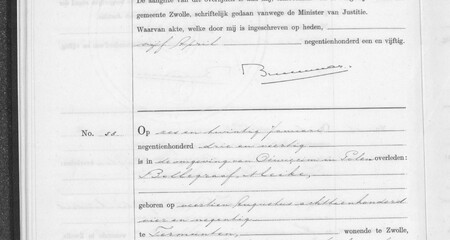 De aangifte van dit overlijden is aan mij, ambtenaar
gemeente Zwolle, schriftelijk gedaan vanwege de Minister van Justitie.
Waarvan akte, welke door mij is ingeschreven op heden,
vijf April negentienhonderd een en vijftig.
No. 55. Op zes en twintig Januari
negentienhonderd drie en veertig
is in de omgeving van Oswiecim in Polen overleden:
geboren op veertien Augustus achttienhonderd
vier en negentig
te Termunten, wonende te Zwolle,